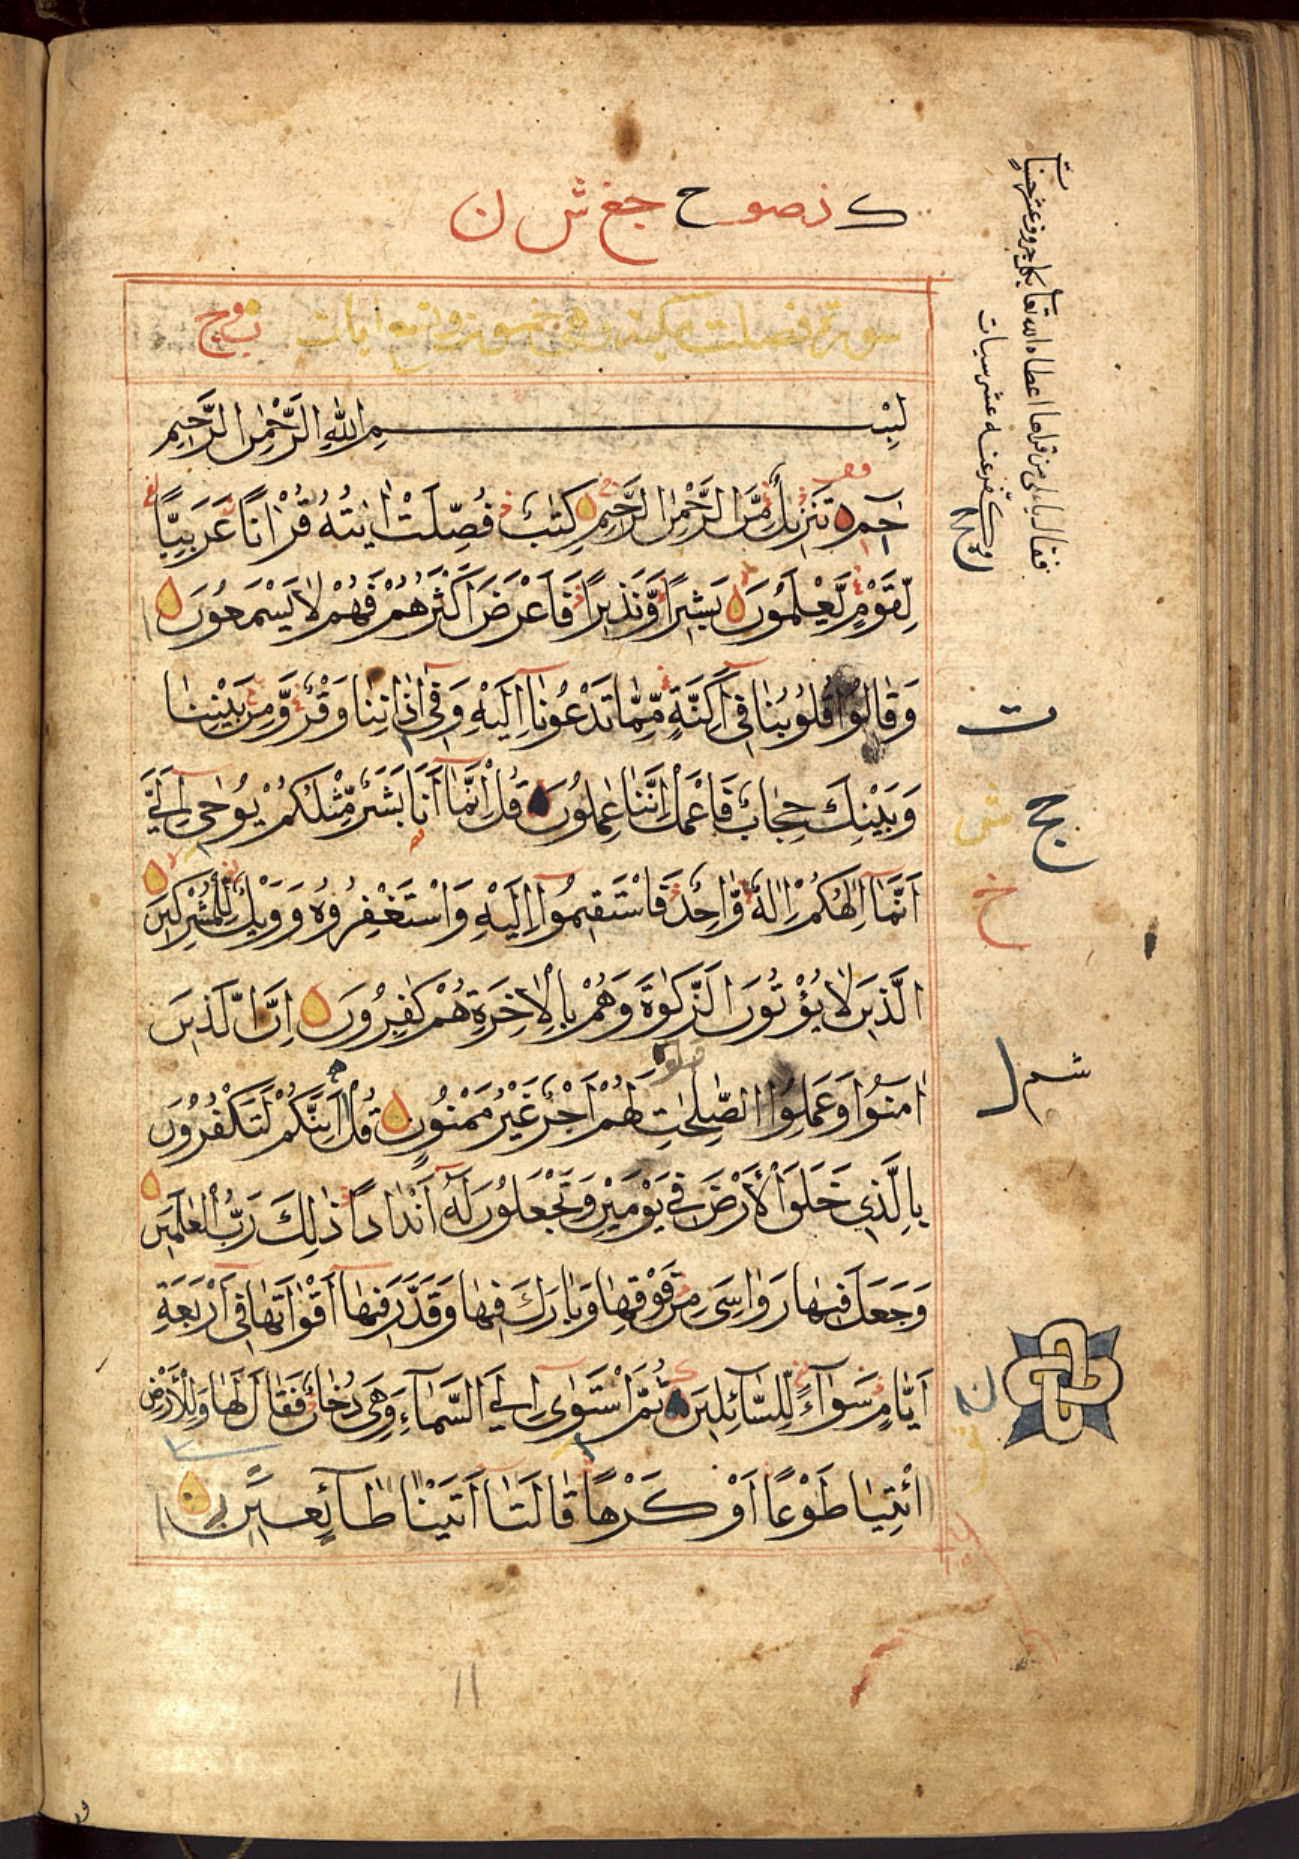 ک نصوح جغ ش ن
سورة فصلت مكية وهى خمسون واربع ايات
بِسْمِ اللّٰهِ الرَّحْمٰنِ الرَّحِيمِ
حٰمٓ تَنْزِيلٌ مِّنَ الرَّحْمٰنِ الرَّحِيمِ كِتٰبٌ فُصِّلَتْ اٰيٰتُهُ قُرْاٰنًا عَرَبِيًّا
لِّقَوْمٍ يَّعْلَمُونَ بَشِيرًا وَّنَذِيرًا فَاَعْرَضَ اَكْثَرُهُمْ فَهُمْ لَا يَسْمَعُونَ
وَقَالُوا قُلُوبُنَا فِىٓ اَكِنَّةٍ مِّمَّا تَدْعُونَآ اِلَيْهِ وَفِىٓ اٰذَانِنَا وَقْرٌ وَّمِنْ بَيْنِنَا
وَبَيْنِكَ حِجَابٌ فَاعْمَلْ اِنَّنَا عٰمِلُونَ قُلْ اِنَّمَآ اَنَا بَشَرٌ مِّثْلُكُمْ يُوحٰىٓ اِلَيَّ
اَنَّمَآ اِلٰهُكُمْ اِلٰهٌ وَّاحِدٌ فَاسْتَقِيمُوآ اِلَيْهِ وَاسْتَغْفِرُوهُ وَوَيْلٌ لِّلْمُشْرِكِينَ
الَّذِينَ لَا يُؤْتُونَ الزَّكٰوةَ وَهُمْ بِالْاٰخِرَةِ هُمْ كٰفِرُونَ اِنَّ الَّذِينَ
اٰمَنُوا وَعَمِلُوا الصّٰلِحٰتِ لَهُمْ اَجْرٌ غَيْرُ مَمْنُونٍ قُلْ اَئِنَّكُمْ لَتَكْفُرُونَ
بِالَّذِي خَلَقَ الْاَرْضَ فِي يَوْمَيْنِ وَتَجْعَلُونَ لَهٓ اَنْدَادًا ذٰلِكَ رَبُّ الْعٰلَمِينَ
وَجَعَلَ فِيهَا رَوَاسِىَ مِنْ فَوْقِهَا وَبَارَكَ فِيهَا وَقَدَّرَ فِيهَآ اَقْوَاتَهَا فِىٓ اَرْبَعَةِ
اَيَّامٍ سَوَآءً لِّلسَّآئِلِينَ ثُمَّ اسْتَوٰىٓ اِلَى السَّمَآءِ وَهِىَ دُخَانٌ فَقَالَ لَهَا وَلِلْاَرْضِ
ائْتِيَا طَوْعًا اَوْ كَرْهًا قَالَتَآ اَتَيْنَا طَآئِعِينَ
فقال يا على من قراها اعطاه الله تعا بكل حروف عشر حسنات
وكفر عنه عشر سيات
ت
ج
ش
خ
شم
ل
ن
١١